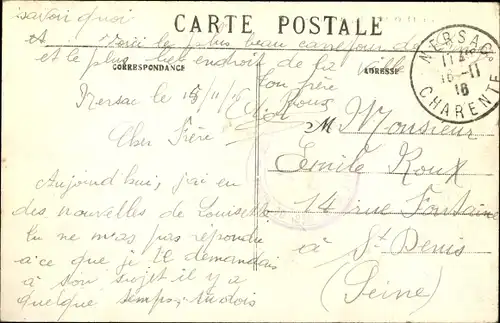 savoir quoi
CARTE POSTALE
Voici le plus beau carrefour de
et le plus bel endroit de la ville
CORRESPONDANCE
ADRESSE
Ton frère
Roux
Nersac le 15/11/16
Cher Frère
Aujourd'hui, j'ai eu
des nouvelles de Louisette
tu ne m'as pas répondu
à ce que je te demandais
à son sujet il y a
quelque temps, tu dois
M Monsieur
Emile Roux
14 rue Fontaine
à St Denis
(Seine)
NERSAC
16-11
16
CHARENTE